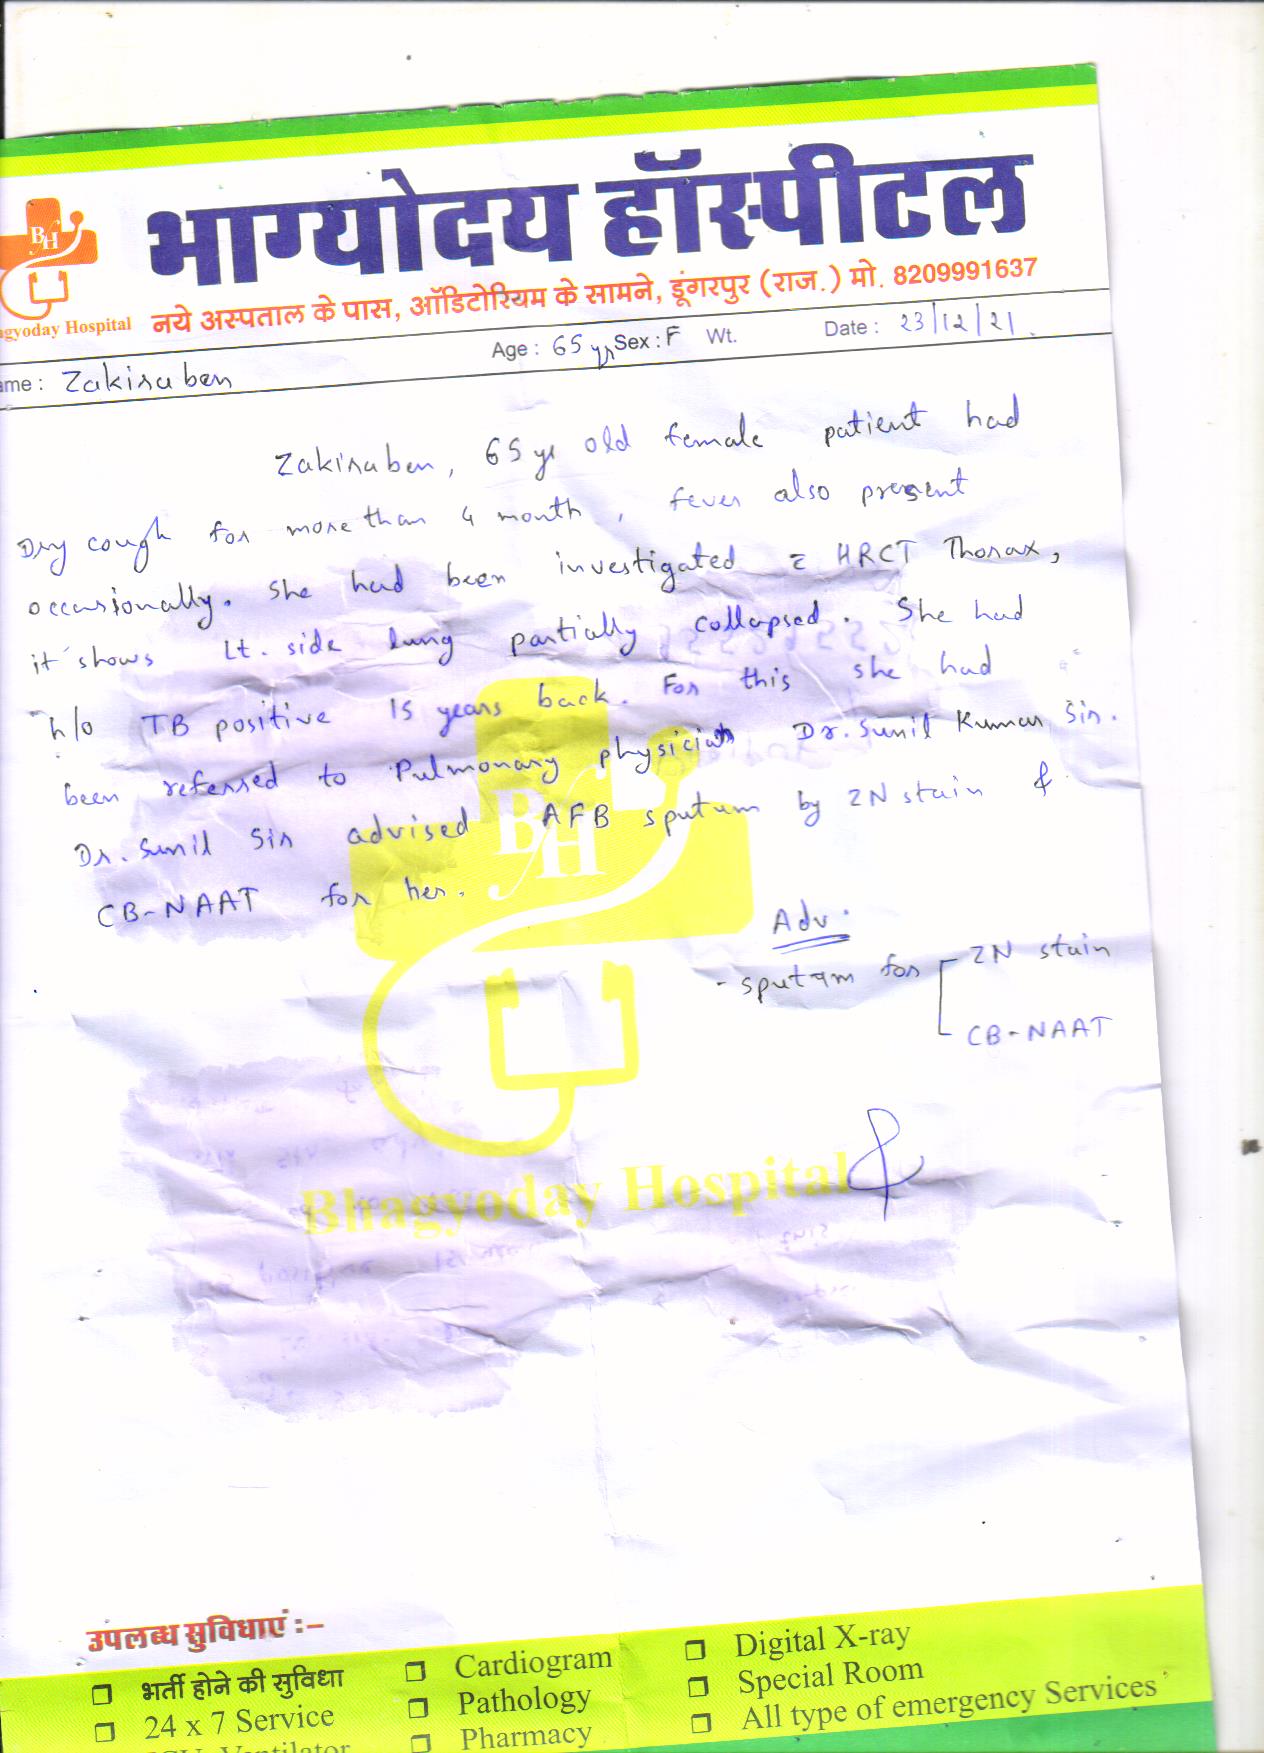 भाग्योदय हॉस्पीटल
BH
gyoday Hospital
नये अस्पताल के पास, ऑडिटोरियम के सामने, डूंगरपुर (राज.) मो. 8209991637
ame : Zakiruben Age : 65 yr Sex : F Wt. Date : 23/12/21.
Zakiruben, 65 yr old female patient had
Dry cough for more than 4 month, fever also present
occursionally. She had been investigated c̄ HRCT Thorax,
it shows Lt. side lung partially collapsed. She had
h/o TB positive 15 years back. For this she had
been referred to Pulmonary physician Dr. Sunil Kumar Sir.
Dr. Sunil Sir advised AFB sputum by ZN stain &
CB-NAAT for her.
Adv.
- sputum for ZN stain
CB-NAAT
BH
Bhagyoday Hospital
उपलब्ध सुविधाएं :–
भर्ती होने की सुविधा
24 x 7 Service
Ventilator
Cardiogram
Pathology
Pharmacy
Digital X-ray
Special Room
All type of emergency Services